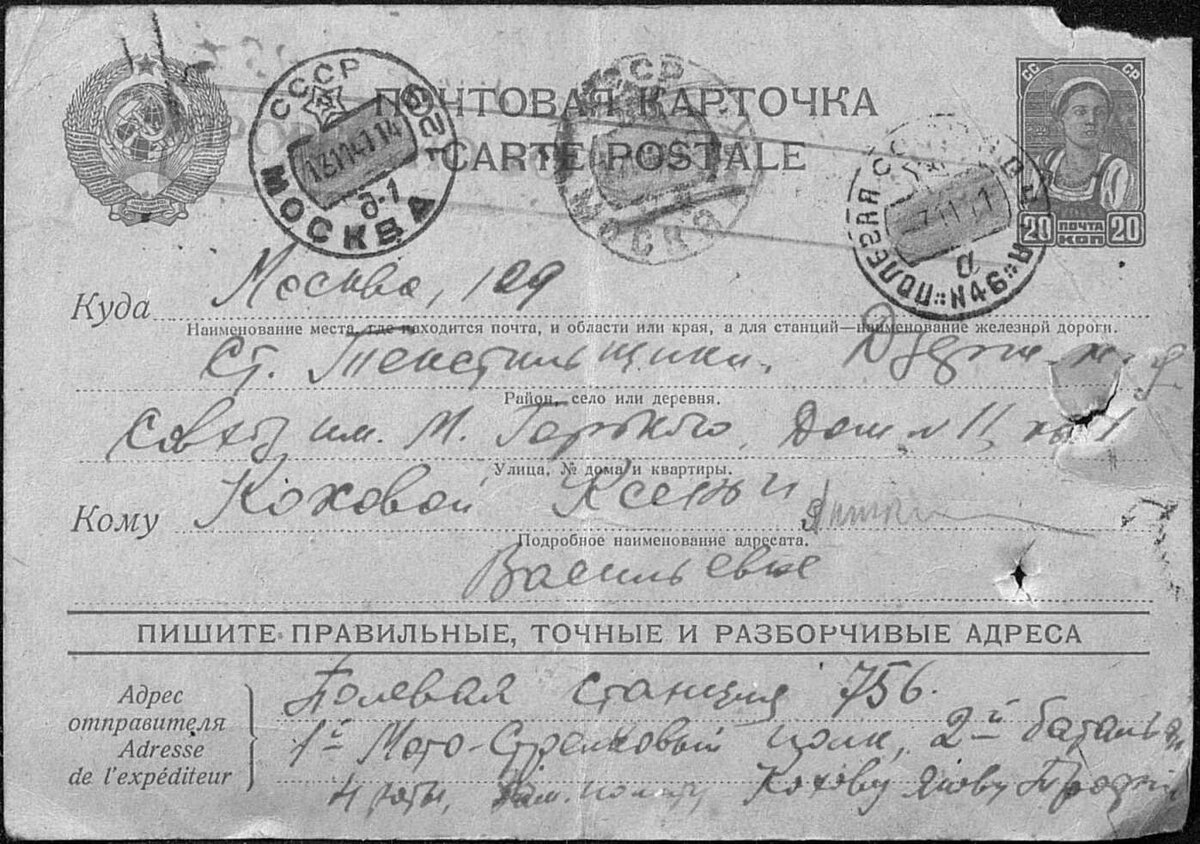 ПОЧТОВАЯ КАРТОЧКА
CARTE POSTALE
СССР
МОСКВА
д-1
СССР
МОСКВА
ПОЛЕВАЯ
N46
а
СС СР
20 ПОЧТА КОП 20
Куда Москва, 109
Наименование места, где находится почта, и области или края, а для станций—наименование железной дороги.
ст. Текстильщики,
Район, село или деревня.
им. М. Горького, Дом № 11,
Улица, № дома и квартиры.
Кому Коховой Ксении
Подробное наименование адресата.
Васильевне
ПИШИТЕ ПРАВИЛЬНЫЕ, ТОЧНЫЕ И РАЗБОРЧИВЫЕ АДРЕСА
Адрес отправителя
Adresse de l'expéditeur
Полевая станция 756.
1й Мото-Стрелковый полк, 2й
4 роты, Кохову Якову